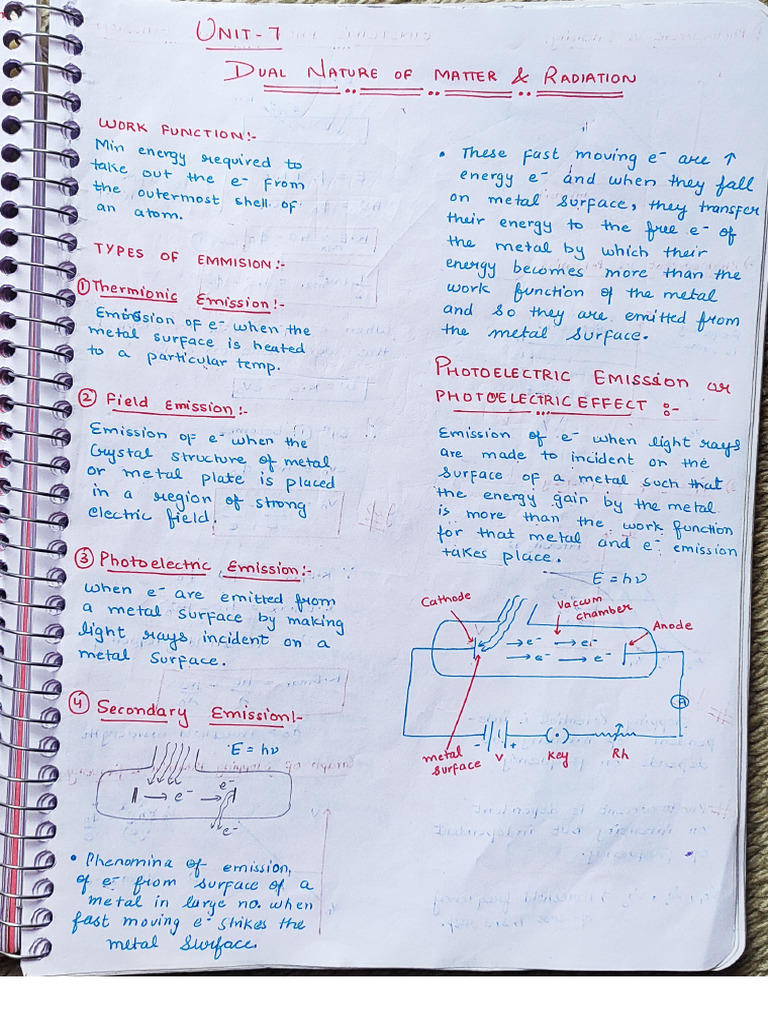 UNIT-7
DUAL NATURE OF MATTER & RADIATION
WORK FUNCTION:-
Min energy required to
take out the e- from
the outermost shell of
an atom.
TYPES OF EMMISION:-
① Thermionic Emission:-
Emission of e- when the
metal surface is heated
to a particular temp.
② Field Emission:-
Emission of e- when the
Crystal structure of metal
or metal plate is placed
in a region of strong
electric field.
③ Photoelectric Emission:-
when e- are emitted from
a metal surface by making
light rays incident on a
metal surface.
④ Secondary Emission:-
E = hν
→ e- → e-
e-
• Phenomina of emission,
of e- from surface of a
metal in large no. when
fast moving e- strikes the
metal surface.
• These fast moving e- are ↑
energy e- and when they fall
on metal surface, they transfer
their energy to the free e- of
the metal by which their
energy becomes more than the
work function of the metal
and so they are emitted from
the metal surface.
PHOTOELECTRIC EMISSION or
PHOTOELECTRIC EFFECT :-
Emission of e- when light rays
are made to incident on the
surface of a metal such that
the energy gain by the metal
is more than the work function
for that metal and e- emission
takes place.
E = hν
Cathode
Vacuum
chamber
Anode
→ e- → e-
→ e- → e-
A
- V +
Key
Rh
metal
surface